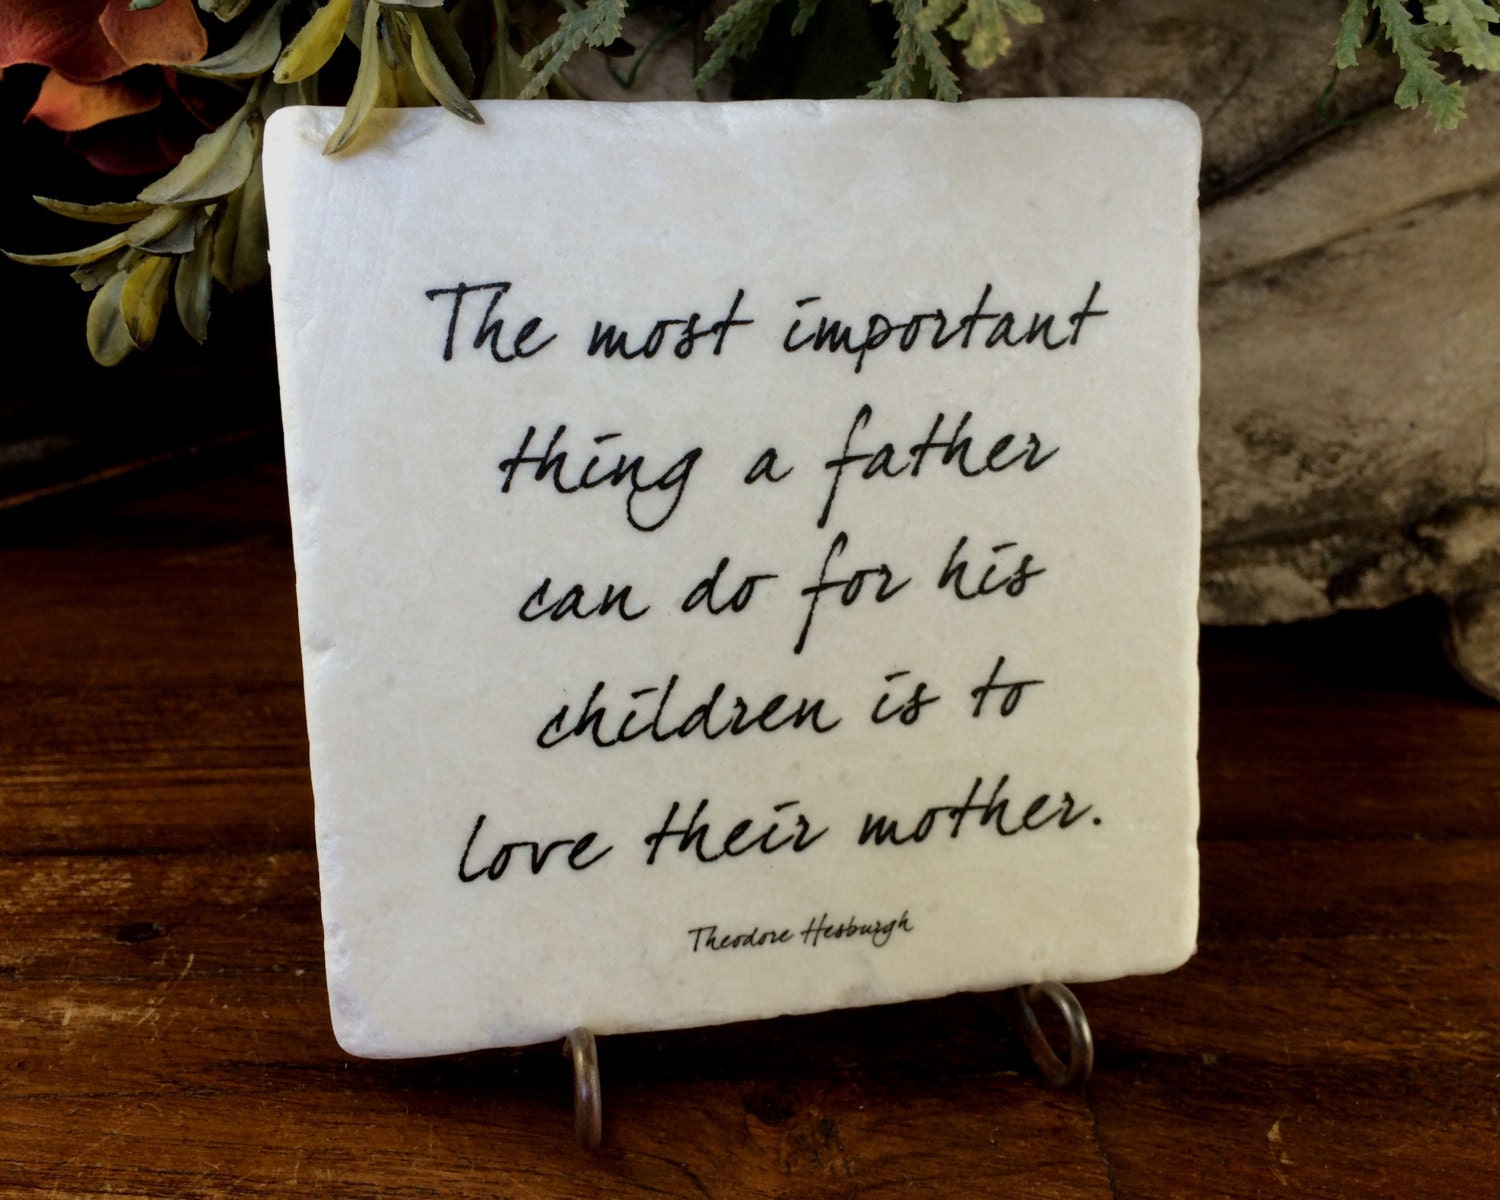 The most important
thing a father
can do for his
children is to
love their mother.
Theodore Hesburgh